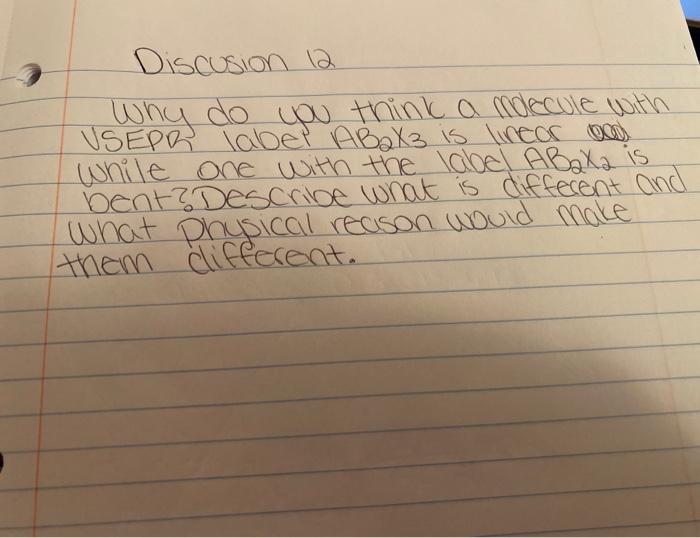 Discusion 12
Why do you think a molecule with
VSEPR label AB2X3 is linear
while one with the label AB2X2 is
bent? Describe what is different and
what physical reason would make
them different.